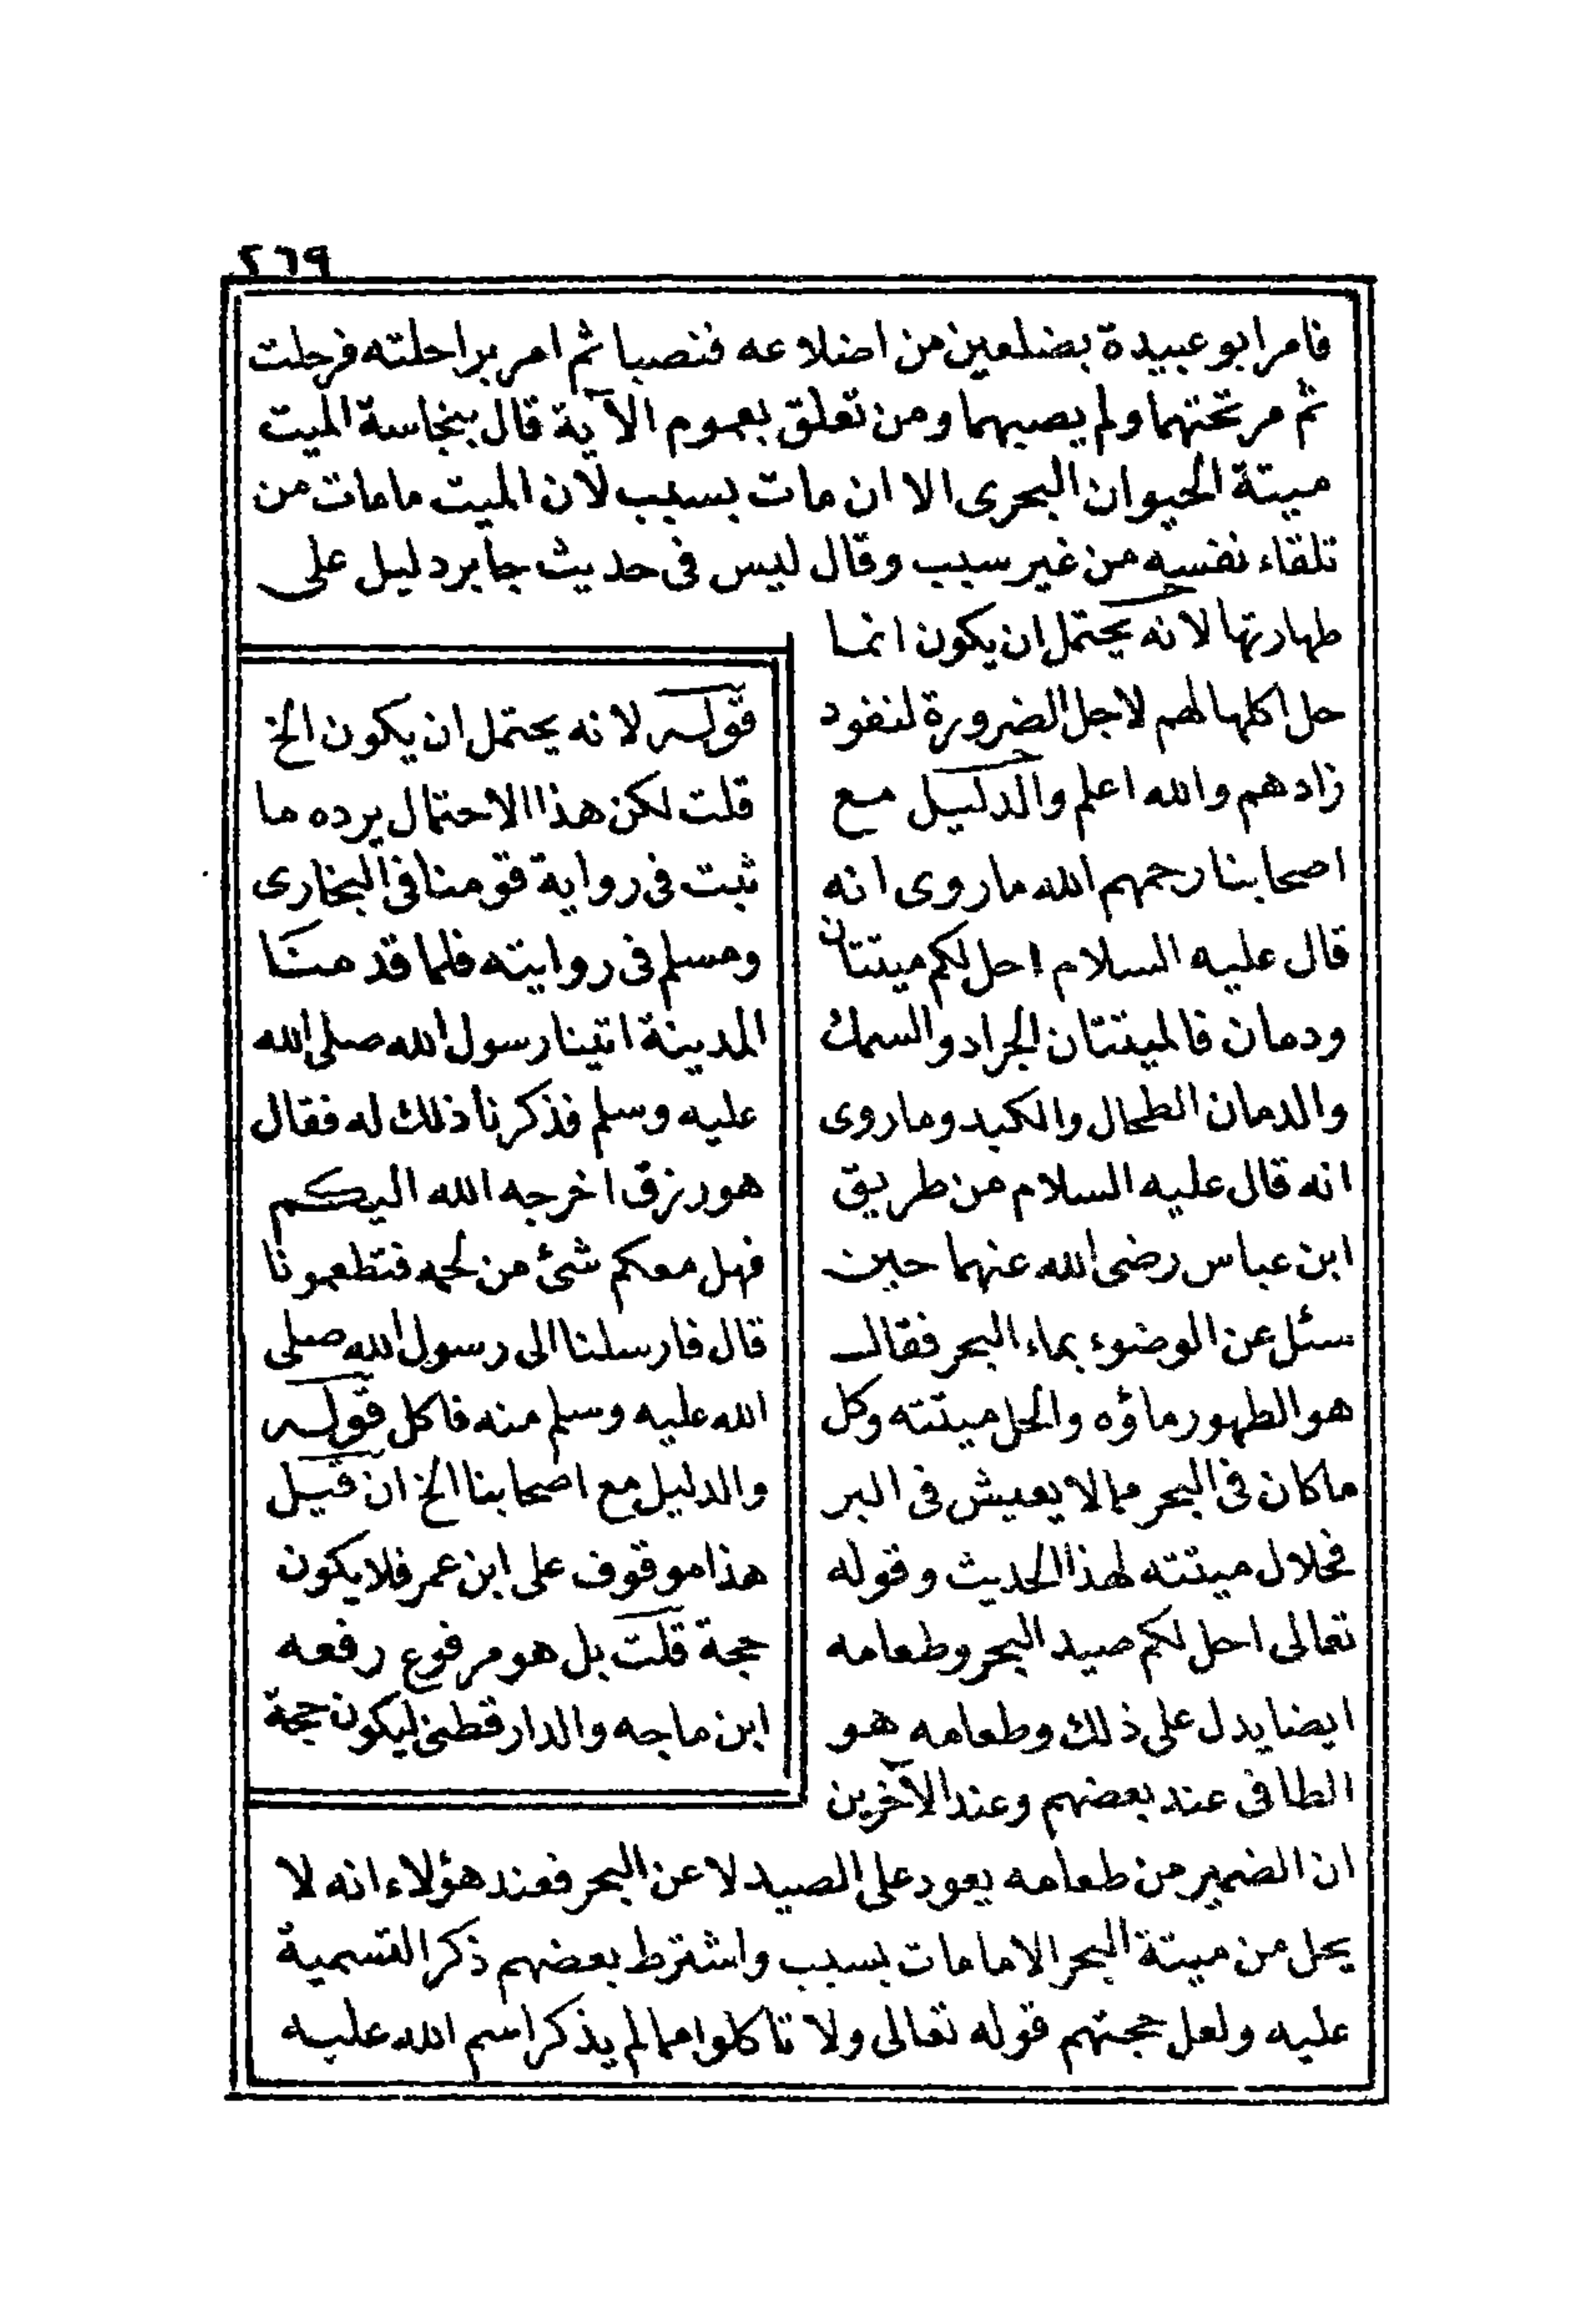 ٢٦٩
فامر ابو عبيدة بضلعين من اضلاعه فنصبا ثم امر براحلته فرحلت
ثم مر تحتهما ولم يصبهما ومن تعلق بعموم الآية قال بنجاسة الميت
ميتة الحيوان البحرى الا ان مات بسبب لان الميت ما مات من
تلقاء نفسه من غير سبب وقال ليس فى حديث جابر دليل على
طهارتها لانه يحتمل ان يكون انما
حل اكلها لهم لاجل الضرورة لنفود
زادهم والله اعلم والدليل مع
اصحابنا رحمهم الله ما روى انه
قال عليه السلام احل لكم ميتتان
ودمان فالميتتان الجراد والسمك
والدمان الطحال والكبد وما روى
انه قال عليه السلام من طريق
ابن عباس رضى الله عنهما حين
سئل عن الوضوء بماء البحر فقال
هو الطهور ماؤه والحل ميتته وكل
ما كان فى البحر مما لا يعيش فى البر
فحلال ميتته لهذا الحديث وقوله
تعالى احل لكم صيد البحر وطعامه
ايضا يدل على ذلك وطعامه هو
الطافى عند بعضهم وعند الآخرين
ان الضمير من طعامه يعود على الصيد لا عن البحر فعند هؤلاء انه لا
يحل من ميتة البحر الا ما مات بسبب واشترط بعضهم ذكر التسمية
عليه ولعل حجتهم قوله تعالى ولا تاكلوا مما لم يذكر اسم الله عليه
قوله لانه يحتمل ان يكون الخ
قلت لكن هذا الاحتمال يرده ما
ثبت فى رواية قومنا فى البخارى
ومسلم فى روايته فلما قدمنا
المدينة اتينا رسول الله صلى الله
عليه وسلم فذكرنا ذلك له فقال
هو رزق اخرجه الله اليكم
فهل معكم شئ من لحمه فتطعمونا
قال فارسلنا الى رسول الله صلى
الله عليه وسلم منه فاكل قوله
والدليل مع اصحابنا الخ ان قيل
هذا موقوف على ابن عمر فلا يكون
حجة قلت بل هو مرفوع رفعه
ابن ماجه والدارقطنى ليكون حجة